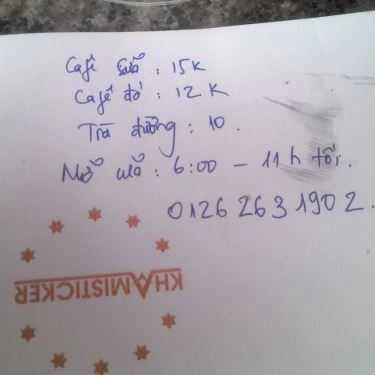 Cafê sữa : 15K
Cafê đá : 12K
Trà đường : 10.
Mở cửa : 6:00 – 11h tối.
0126 263 1902.
KHAMISTICKER